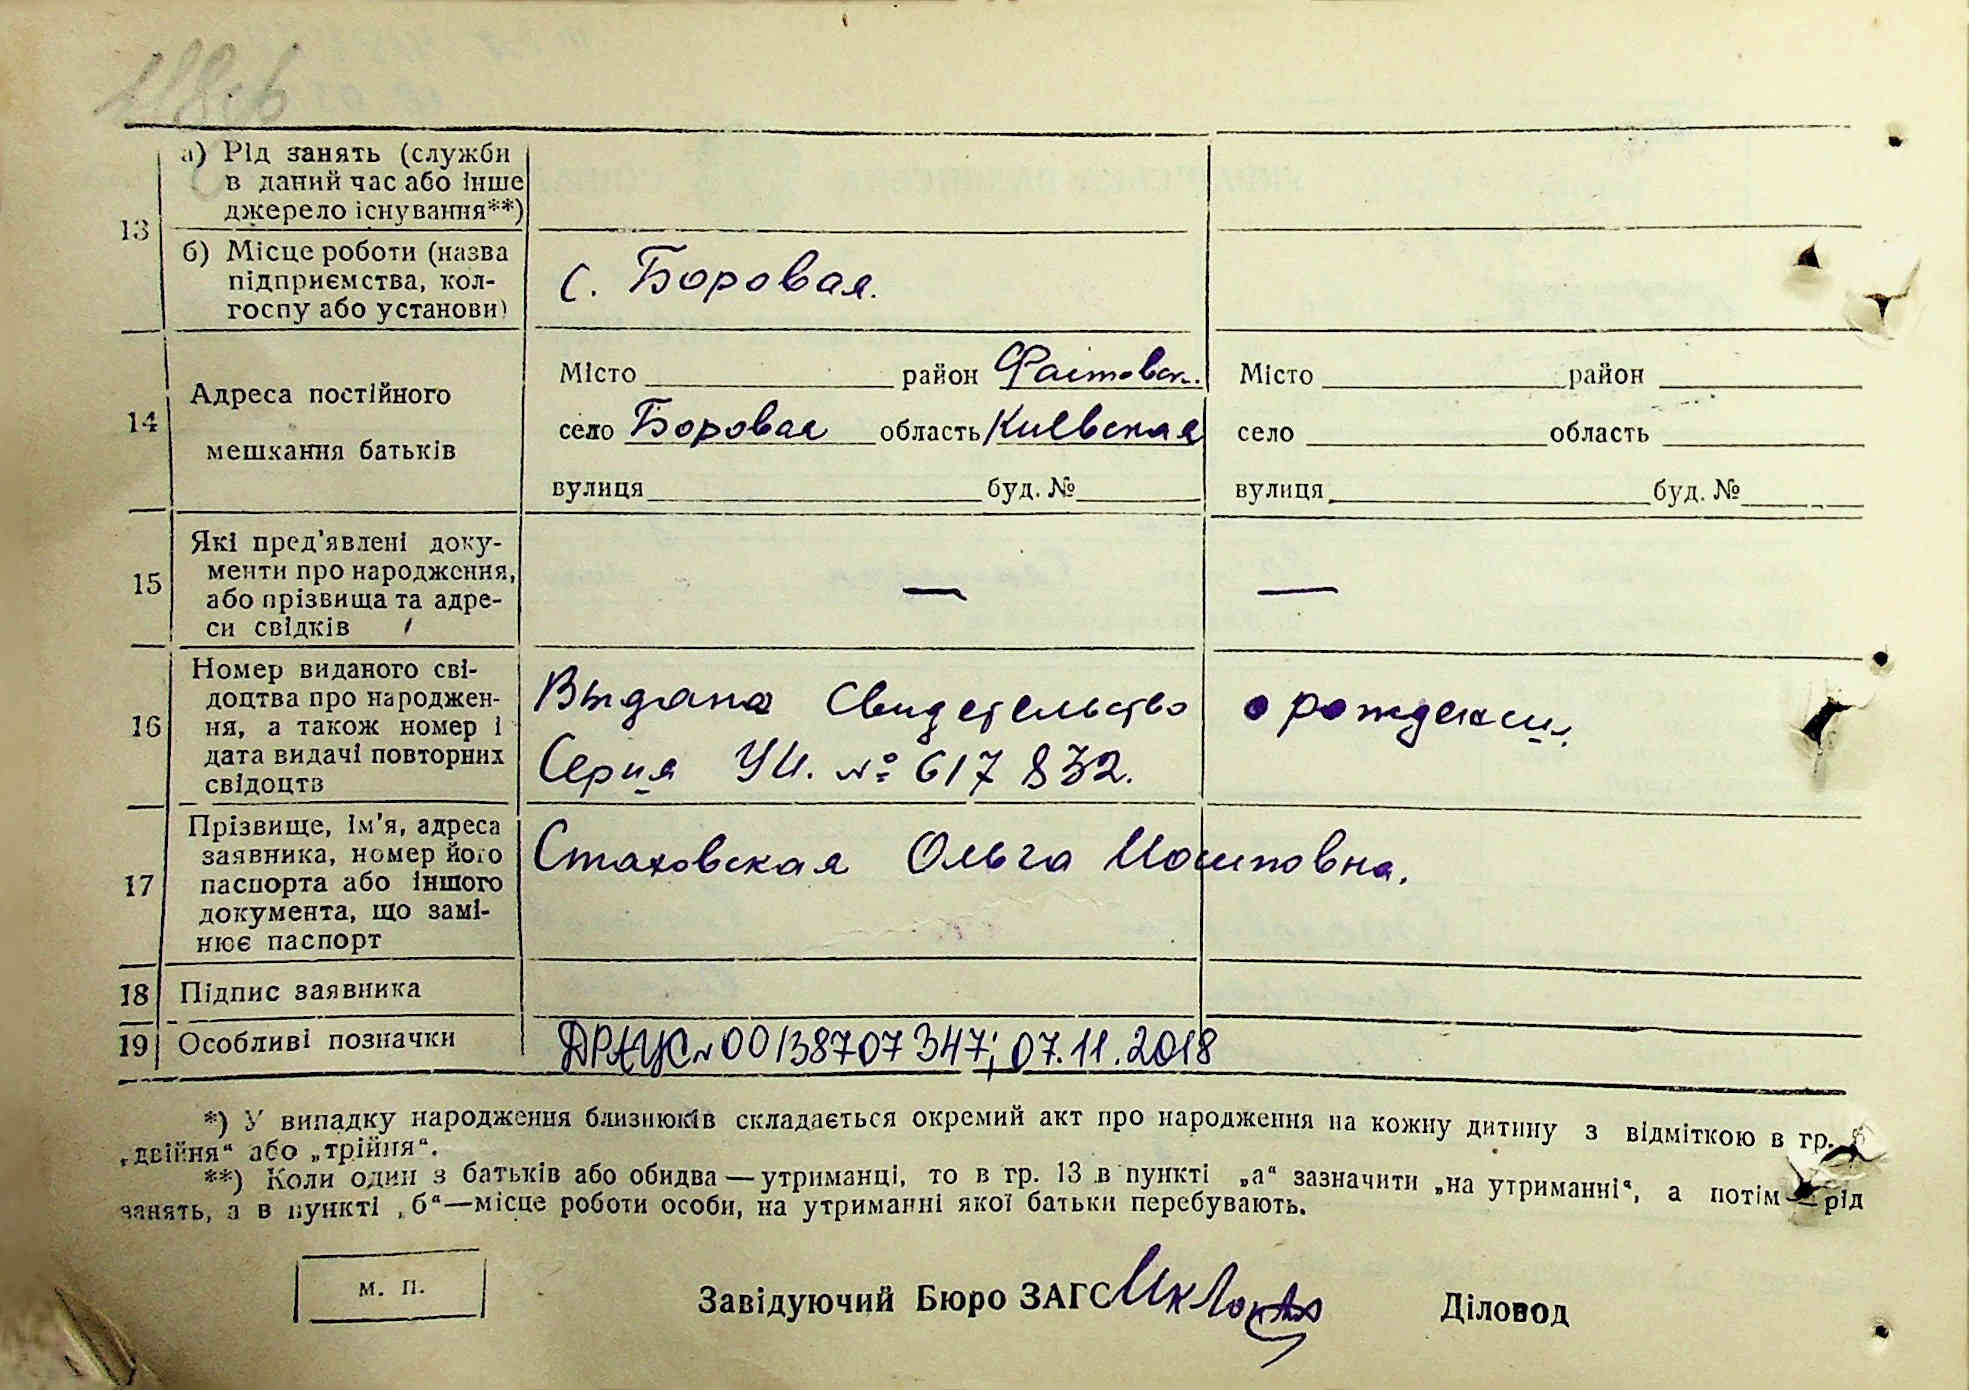 13
а) Рід занять (служби
в даний час або інше
джерело існування**)
б) Місце роботи (назва
підприємства, кол-
госпу або установи)
с. Боровая.
14
Адреса постійного
мешкання батьків
Місто район Фастовск.
село Боровая область Киевская
вулиця буд. №
Місто район
село область
вулиця буд. №
15
Які пред'явлені доку-
менти про народження,
або прізвища та адре-
си свідків
— —
16
Номер виданого сві-
доцтва про народжен-
ня, а також номер і
дата видачі повторних
свідоцтв
Выдана Свидетельство о рождении.
Серия УЦ. № 617832.
17
Прізвище, ім'я, адреса
заявника, номер його
паспорта або іншого
документа, що замі-
нює паспорт
Стаховская Ольга
18 Підпис заявника
19 Особливі позначки
ДРАЦС № 00138707347; 07.11.2018
*) У випадку народження близнюків складається окремий акт про народження на кожну дитину з відміткою в гр.
„двійня“ або „трійня“.
**) Коли один з батьків або обидва — утриманці, то в гр. 13 в пункті „а“ зазначити „на утриманні“, а потім — рід
занять, а в пункті „б“ — місце роботи особи, на утриманні якої батьки перебувають.
м. п.
Завідуючий Бюро ЗАГС
Діловод